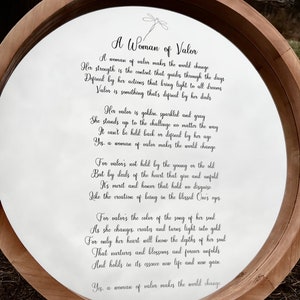 A Woman of Valor
A woman of valor makes the world change
Her strength is the content that guides through the days
Defined by her actions that bring light to all dreams
Valor is something that's defined by her deeds
Her valor is golden, sparkled and grey
She stands up to the challenge no matter the way
It can't be held back or defied by her age
Yes, a woman of valor makes the world change
For valor's not held by the young or the old
But by deeds of the heart that give and unfold
It's merit and honor that hold no disguise
Like the creation of being in the blessed One's eyes
For valor's the color of the song of her soul
As she changes, creates and turns light into gold
For only her heart will know the depths of her soul
That nurtures and blossoms and forever unfolds
And holds in its essence new life and new grace
Yes, a woman of valor makes the world change